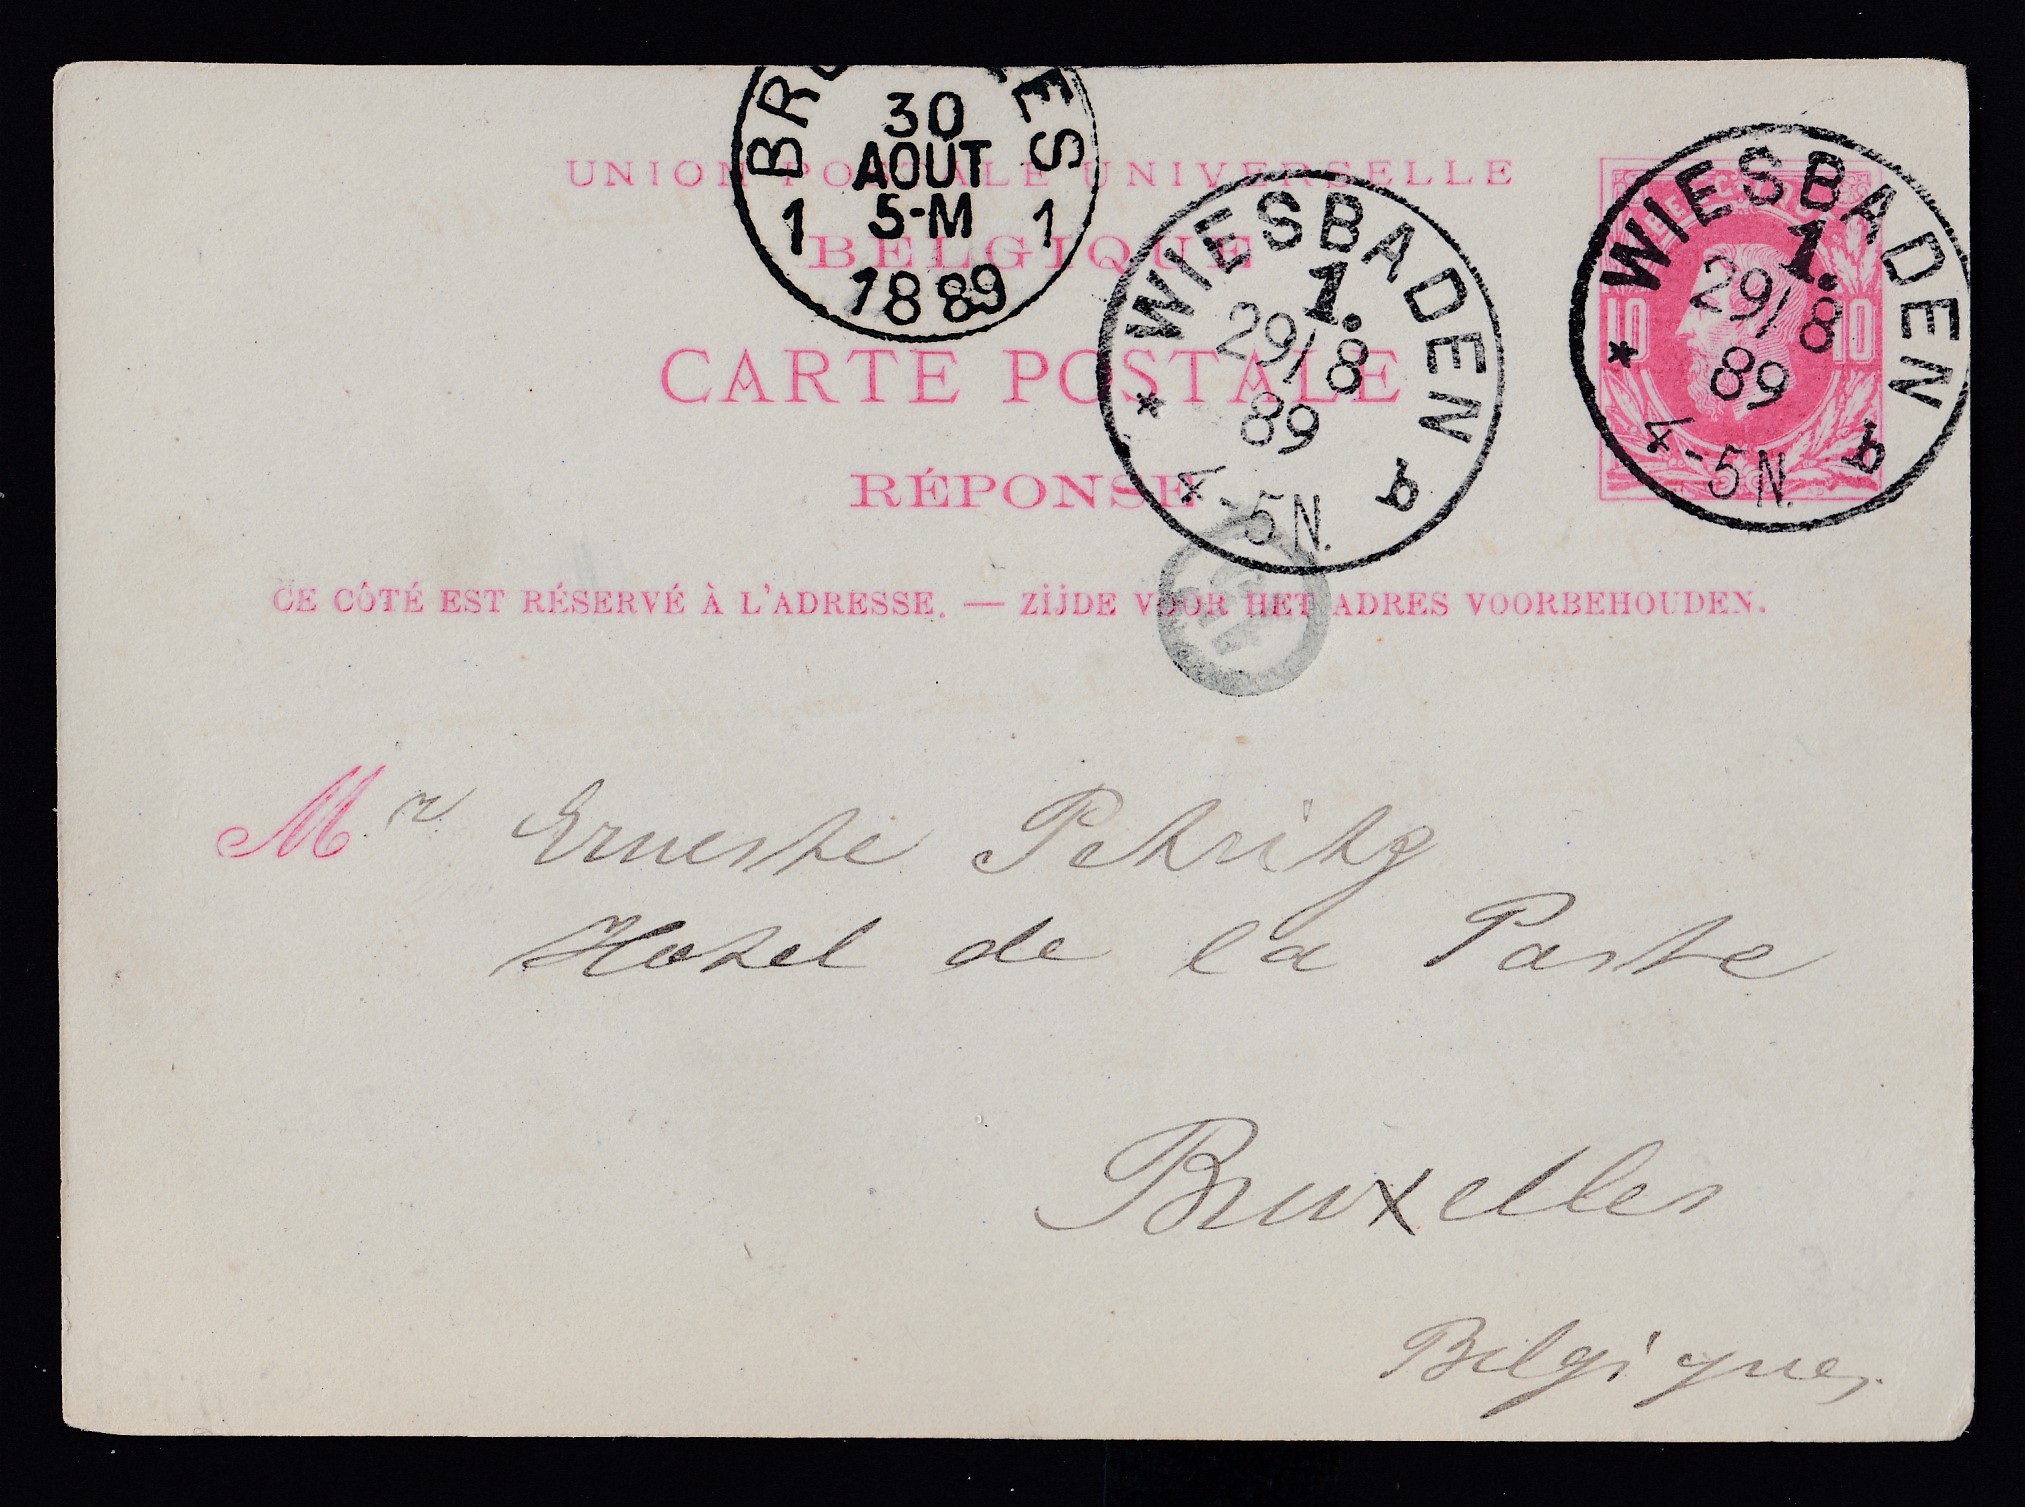 30
AOÛT
5-M
1 1
1889
UNION POSTALE UNIVERSELLE
BELGIQUE
WIESBADEN
1.
29/8
89
4-5N.
* a
WIESBADEN
1.
29/8
89
4-5N.
* a
10 10
CARTE POSTALE
RÉPONSE
CE CÔTÉ EST RÉSERVÉ À L'ADRESSE. — ZIJDE VOOR HET ADRES VOORBEHOUDEN.
Mr Erneste
Hotel de la Poste
Bruxelles
Belgique.